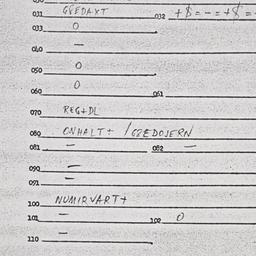 030
031 GPEDAXT 032 + $ = - = + $ =
033 0
040 —
050 0
060 0 061
070 REG+DL
080 ONHALT+ /GPEDOJERN
081 — 082 —
090 —
091 —
100 NUMIRVART+
101 — 102 0
110 —